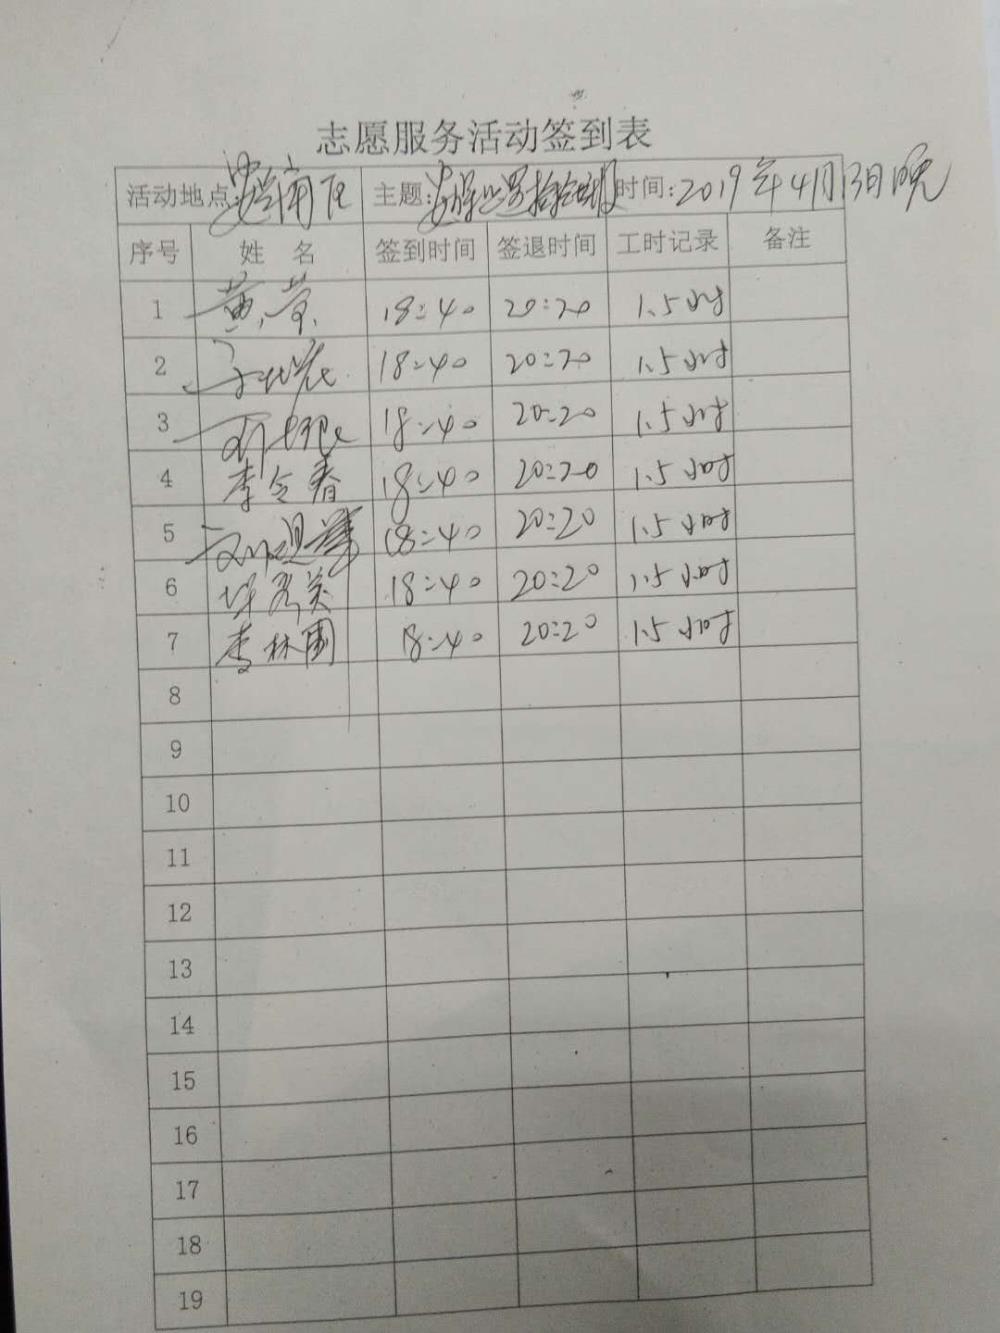 志愿服务活动签到表
活动地点: 主题: 时间:2019年4月13日晚
序号 姓 名 签到时间 签退时间 工时记录 备注
1 18:40 20:20 1.5小时
2 18:40 20:20 1.5小时
3 18:40 20:20 1.5小时
4 李令春 18:40 20:20 1.5小时
5 18:40 20:20 1.5小时
6 18:40 20:20 1.5小时
7 李林圃 18:40 20:20 1.5小时
8
9
10
11
12
13
14
15
16
17
18
19